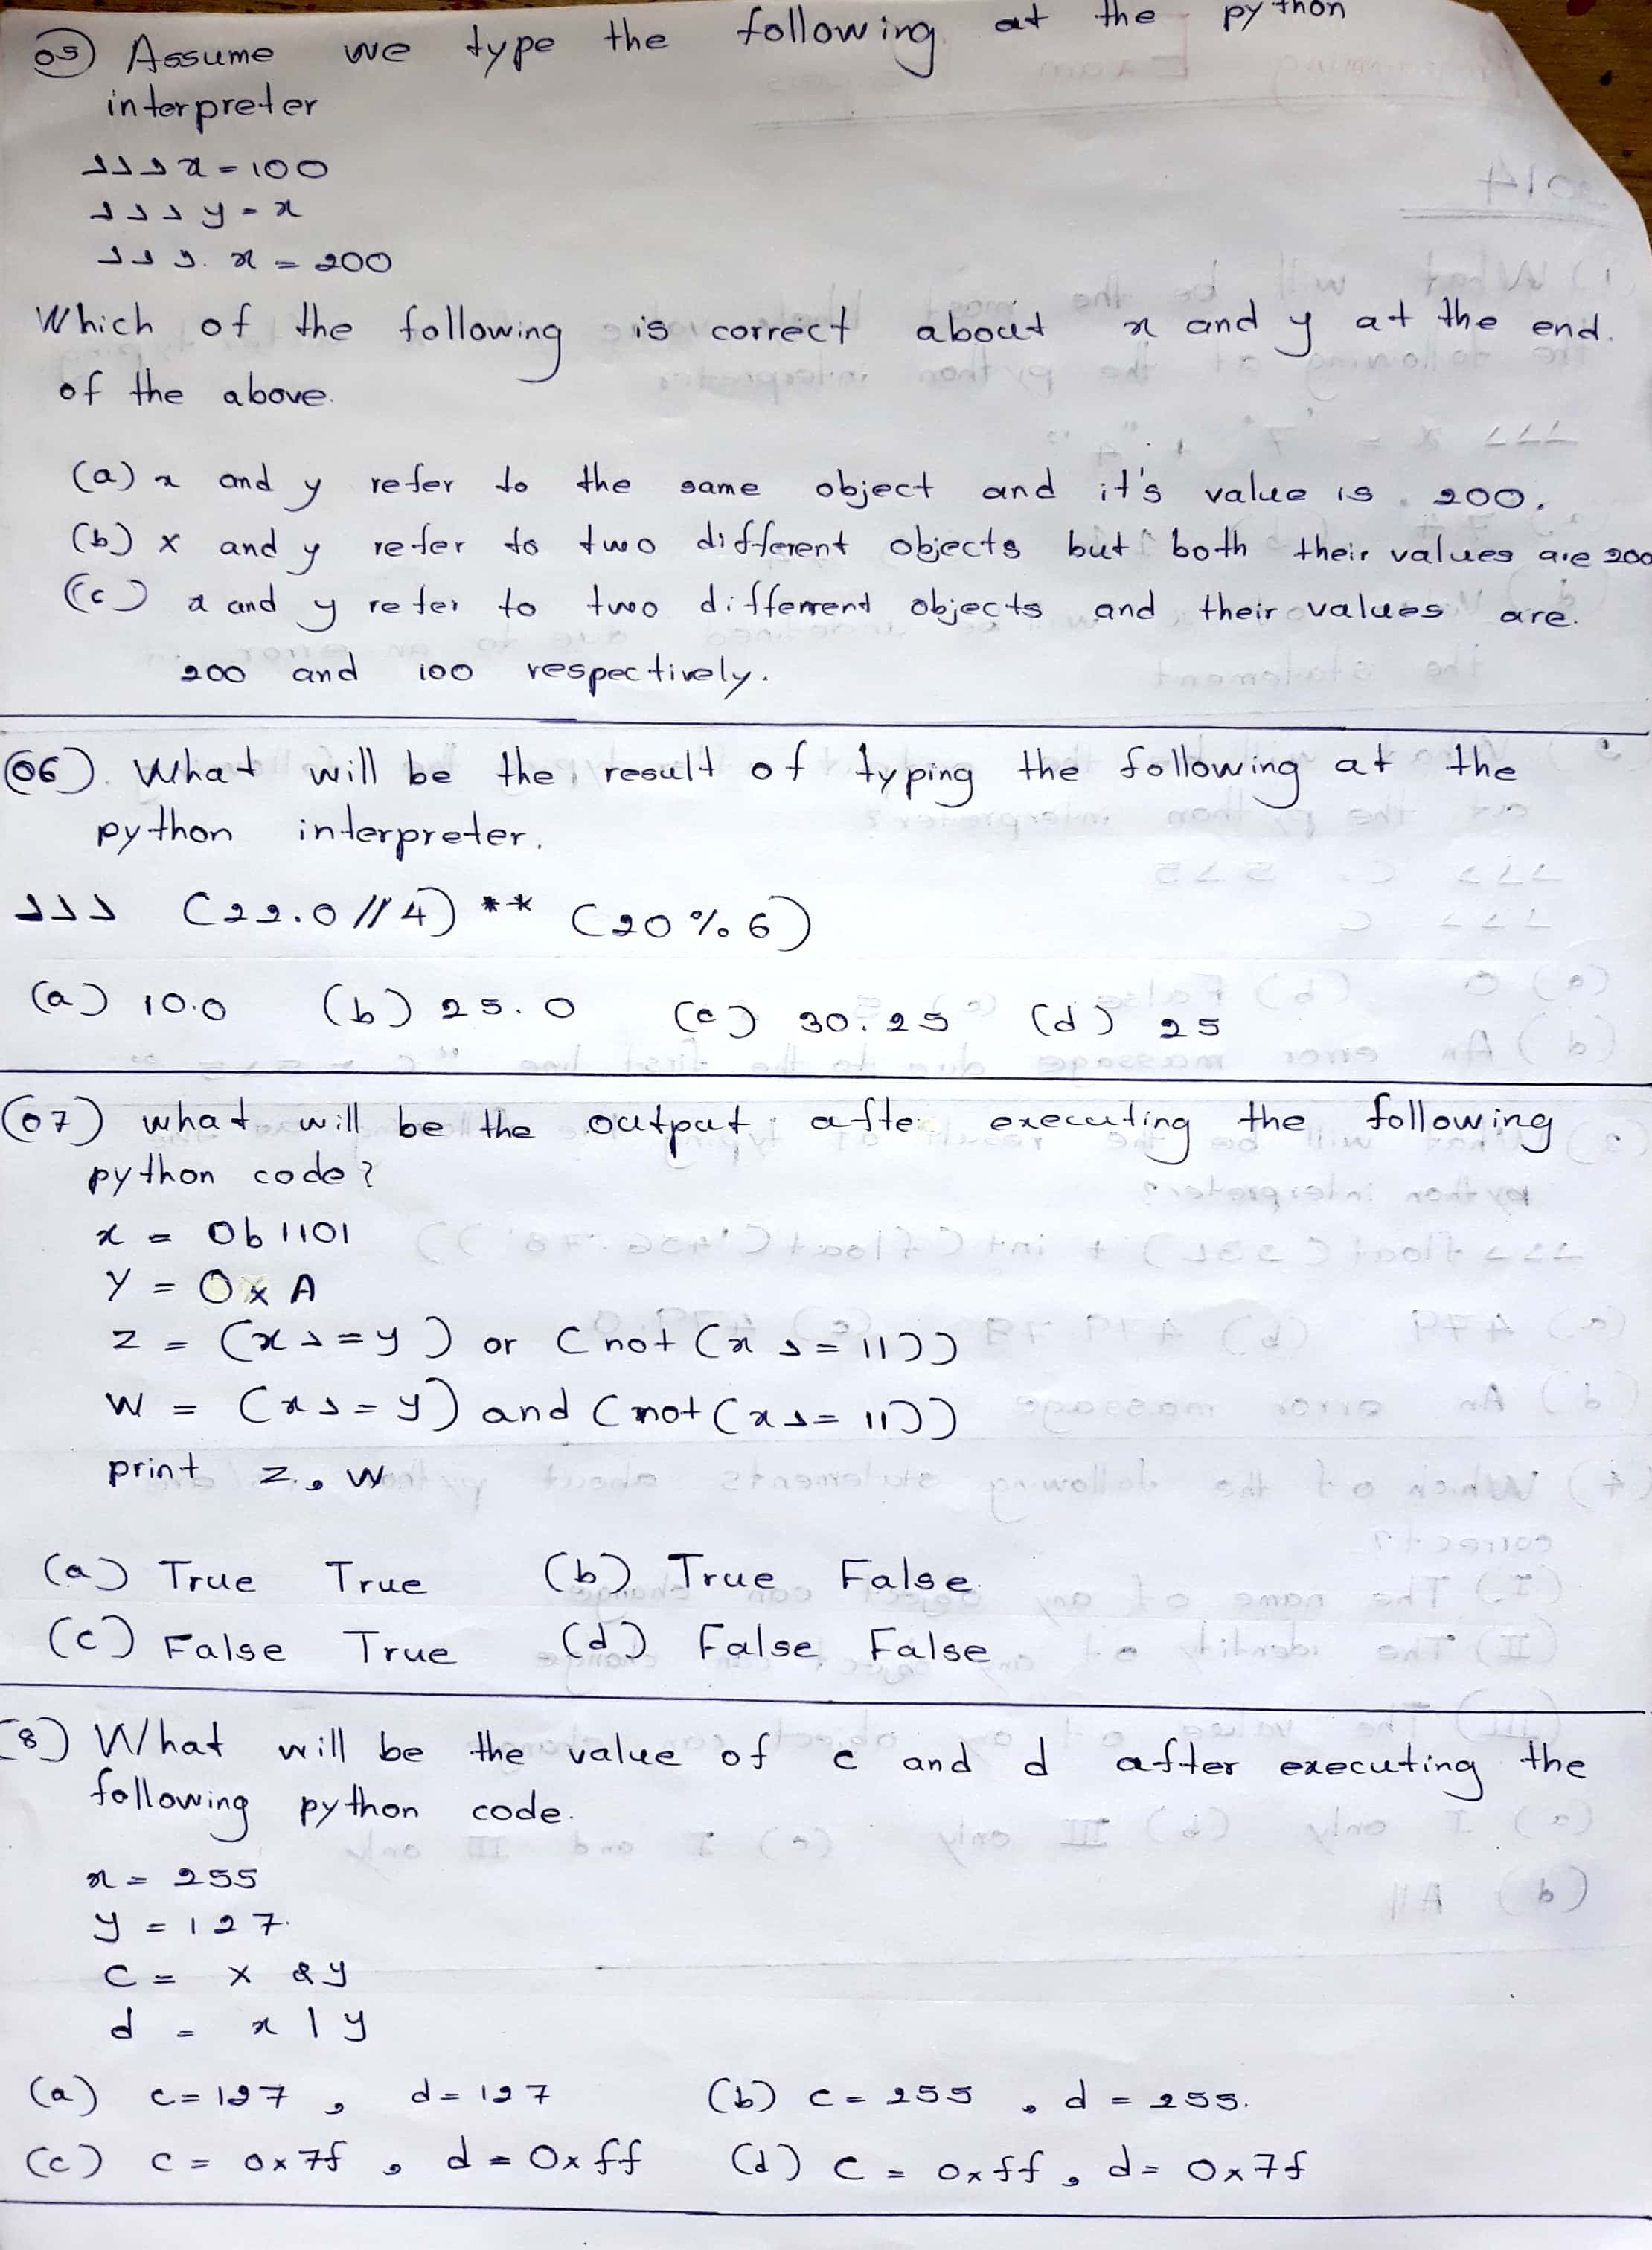 05) Assume we type the following at the python
interpreter
>>> x = 100
>>> y = x
>>> x = 200
Which of the following is correct about x and y at the end.
of the above.
(a) x and y refer to the same object and it's value is 200.
(b) x and y refer to two different objects but both their values are 200
(c) x and y refer to two different objects and their values are.
200 and 100 respectively.
(06) What will be the result of typing the following at the
python interpreter.
>>> (22.0//4) ** (20%6)
(a) 10.0 (b) 25.0 (c) 30.25 (d) 25
(07) what will be the output after executing the following
python code?
x = 0b1101
Y = 0xA
z = (x >= y) or (not (x >= 11))
W = (x >= y) and (not (x >= 11))
print z, W
(a) True True (b) True False.
(c) False True (d) False False
(8) What will be the value of c and d after executing the
following python code.
x = 255
y = 127.
C = x & y
d = x | y
(a) c = 127 , d = 127 (b) c = 255 , d = 255.
(c) c = 0x7f , d = 0xff (d) c = 0xff , d = 0x7f